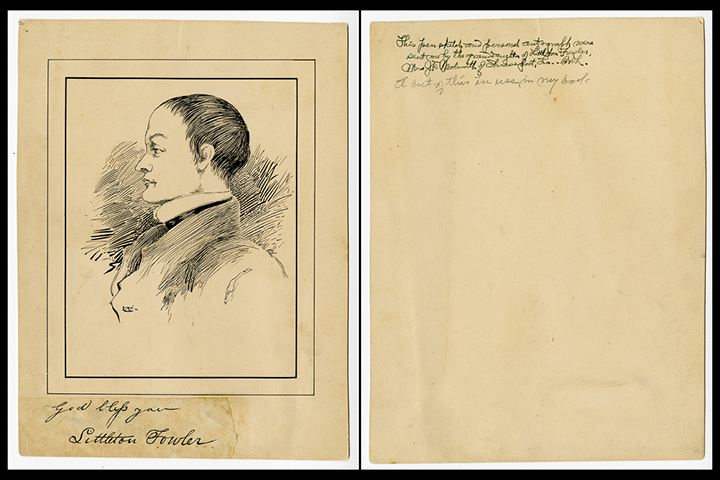 God bless you
Littleton Fowler
This pen sketch and personal autograph were
sent me by the grandaughter of Littleton Fowler,
Mrs. of Shreveport, La.
A cut of this in use in my book